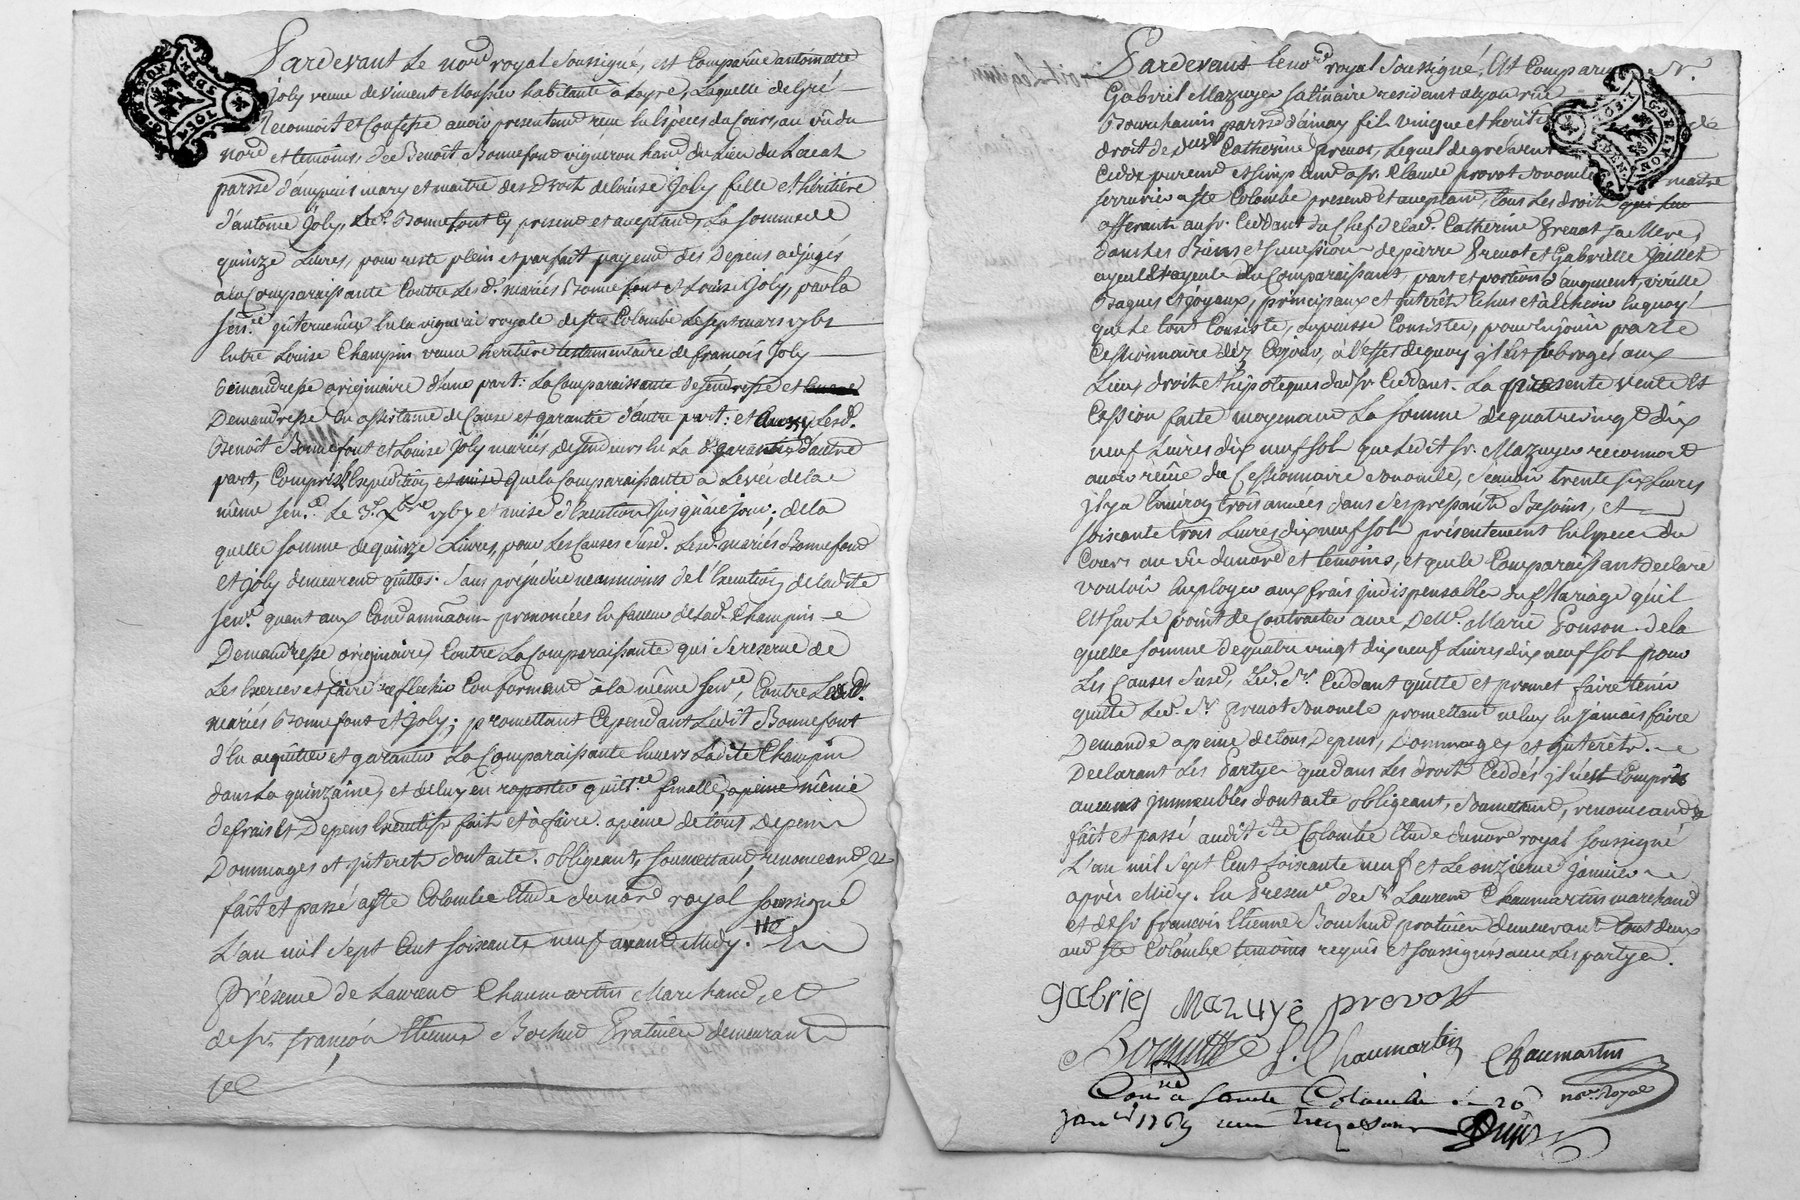 Pardevant Le nore. royal Soussigné, est Comparüe antoinette
Joly veuve de Vincent Monsieu habitante à Loyre, Laquelle de Gré
Reconnoit et Confesse avoir presentement reçu En Espèces du Cours, au vû du
nore. et temoins, de Benoît Bonnefond vigneron hant. du Lieu du
parsse. d'ampuis mary et maitre des Droit de Loüise Joly fille et héritière
d'antoine Joly, Led. Bonnefont Cy présent et acceptant, La Somme de
quinze Livres, pour reste plein et parfait payement des Depens adjugés
à la Comparaissante Contre Lesd. mariés Bonnefont et Louise Joly, par la
Senece. intervenüe En la viguerie royale de ste. Colombe Le Sept mars 1765
Entre Loüise Champin veuve heritière testamentaire de francois Joly
Demandresse originaire d'une part: La Comparaissante defendresse et
Demandresse En assistance de Cause et garantie d'autre part: et Aussy Lesd.
Benoît Bonnefont et Louise Joly mariés defendeurs En La de. garantie d'autre
part, Compris L'expedition et mise que la Comparaissante a Levée de la
même Sence. Le 3e. Xbre. 1767 et mise d'Execution Jusqu'àce jour; de la
quelle Somme de quinze Livres, pour Les Causes Susd. Lesd. mariés Bonnefond
et Joly demeurent quittes. Sans préjudice neanmoins de l'Execution de ladite
Sence. quant aux Condamnaons. prononcées En faveur de lad. Champin
Demandresse originaire, Contre La Comparaissante qui Se reserve de
Les Exercer et faire reflechir Conformement à la même Sence., Contre Lesd.
mariés Bonnefont et Joly; promettant Cependant Ledit Bonnefont
d'En acquitter et garantir La Comparaissante Envers Ladite Champin
dans La quinzaine, et de luy en raporter quitce. finalle, apeine même
de frais et Depens Executifs fait et à faire. apeine de tous Depens
Dommages et interets dont acte. obligeant, Soumettant, renonceant &
fait et passé a ste Colombe Etude du nore. royal Soussigné
L'an mil Sept Cent Soixante neuf avant Midy. En
Présence de Laurent Chaumartin Marchand, et
de sr. françois Etienne Bochud Praticien demeurant
Pardevant Le nore. royal Soussigné, Est Comparu Sr.
Gabriel Mazuyer Salinaire resident a Lyon rue
Bourchanin parsse d'ainay fils unique et heritier de
droit de deffte. Catherine Prevot, Lequel de gré vent
Cedde purement et Simplement a sr. Claude provot Son oncle maitre
serrurier a ste Colombe present et acceptant, tous Les droits qui Lui
afferants au sr. Ceddant du Chef de lad. Catherine Prevot Sa Mere,
dans les Biens et Succession de pierre Prevot et Gabrielle Gaillet
ayeul et ayeule du Comparaissant, part et portion d'augment, virille
Bagues et joyaux, principaux et intérêts Echus et à Echeoir En quoy
que Le tout Consiste, ou puisse Consister, pour En jouir par le
Cessionnaire dèz Cejour, à l'effet de quoy il Est subrogé aux
Lieux droit et hipoteques dud. sr. Ceddant. La presente vente et
Cession faite moyenant La Somme de quatre vingt dix
neuf Livres dix neuf sols que Ledit sr. Mazuyer reconnoit
avoir reçüe du Cessionnaire Son oncle, Sçavoir trente six Livres
il y a Environ trois années dans Ses pressants Besoins, et
Soixante trois Livres dix neuf sols présentement En Especes du
Cours au vû du nore. et temoins, et que le Comparaissant Declare
vouloir Employer aux frais indispensable du Mariage qu'il
Est sur Le point de Contracter avec Delle. Marie Ponson. de la
quelle Somme de quatre vingt dix neuf Livres dix neuf sols pour
Les Causes Susd. Led. Sr. Ceddant quitte et promet faire tenir
quitte Led. Sr prevot Son oncle promettant ne luy En jamais faire
Demande apeine de tous Depens, Dommages et interêts.
Declarant Les Partyes que dans Les droits Ceddés il n'est Compris
aucuns immeubles dont acte obligeant, Soumettant, renonceant &
fait et passé audit ste Colombe Etude du nore royal Soussigné
L'an mil Sept Cent Soixante neuf et Le onzieme janvier
après Midy. En Presence de Sr. Laurent Chaumartin marchand
et de sr. francois Etienne Bouchud praticien demeurant tous deux
aud. ste Colombe temoins requis et Soussignés avec Les partyes.
gabriel Mazuyé provost
L. Chaumartin Chaumartin
nore. Royal
a Sainte Colombe 20
janer. 1769